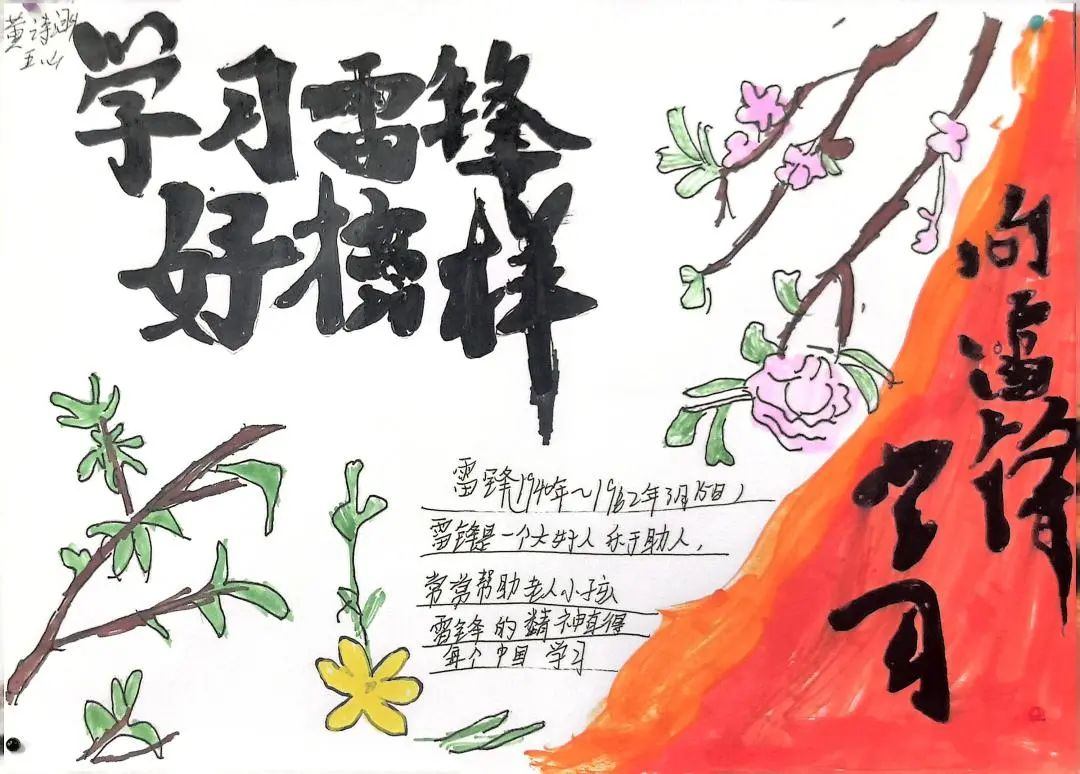 黄诗涵
五、
学习雷锋
好榜样
向雷锋
学习
雷锋（1940年～1962年8月15日）
雷锋是一个大好人 乐于助人，
常常帮助老人小孩
雷锋的精神真得
每个中国 学习